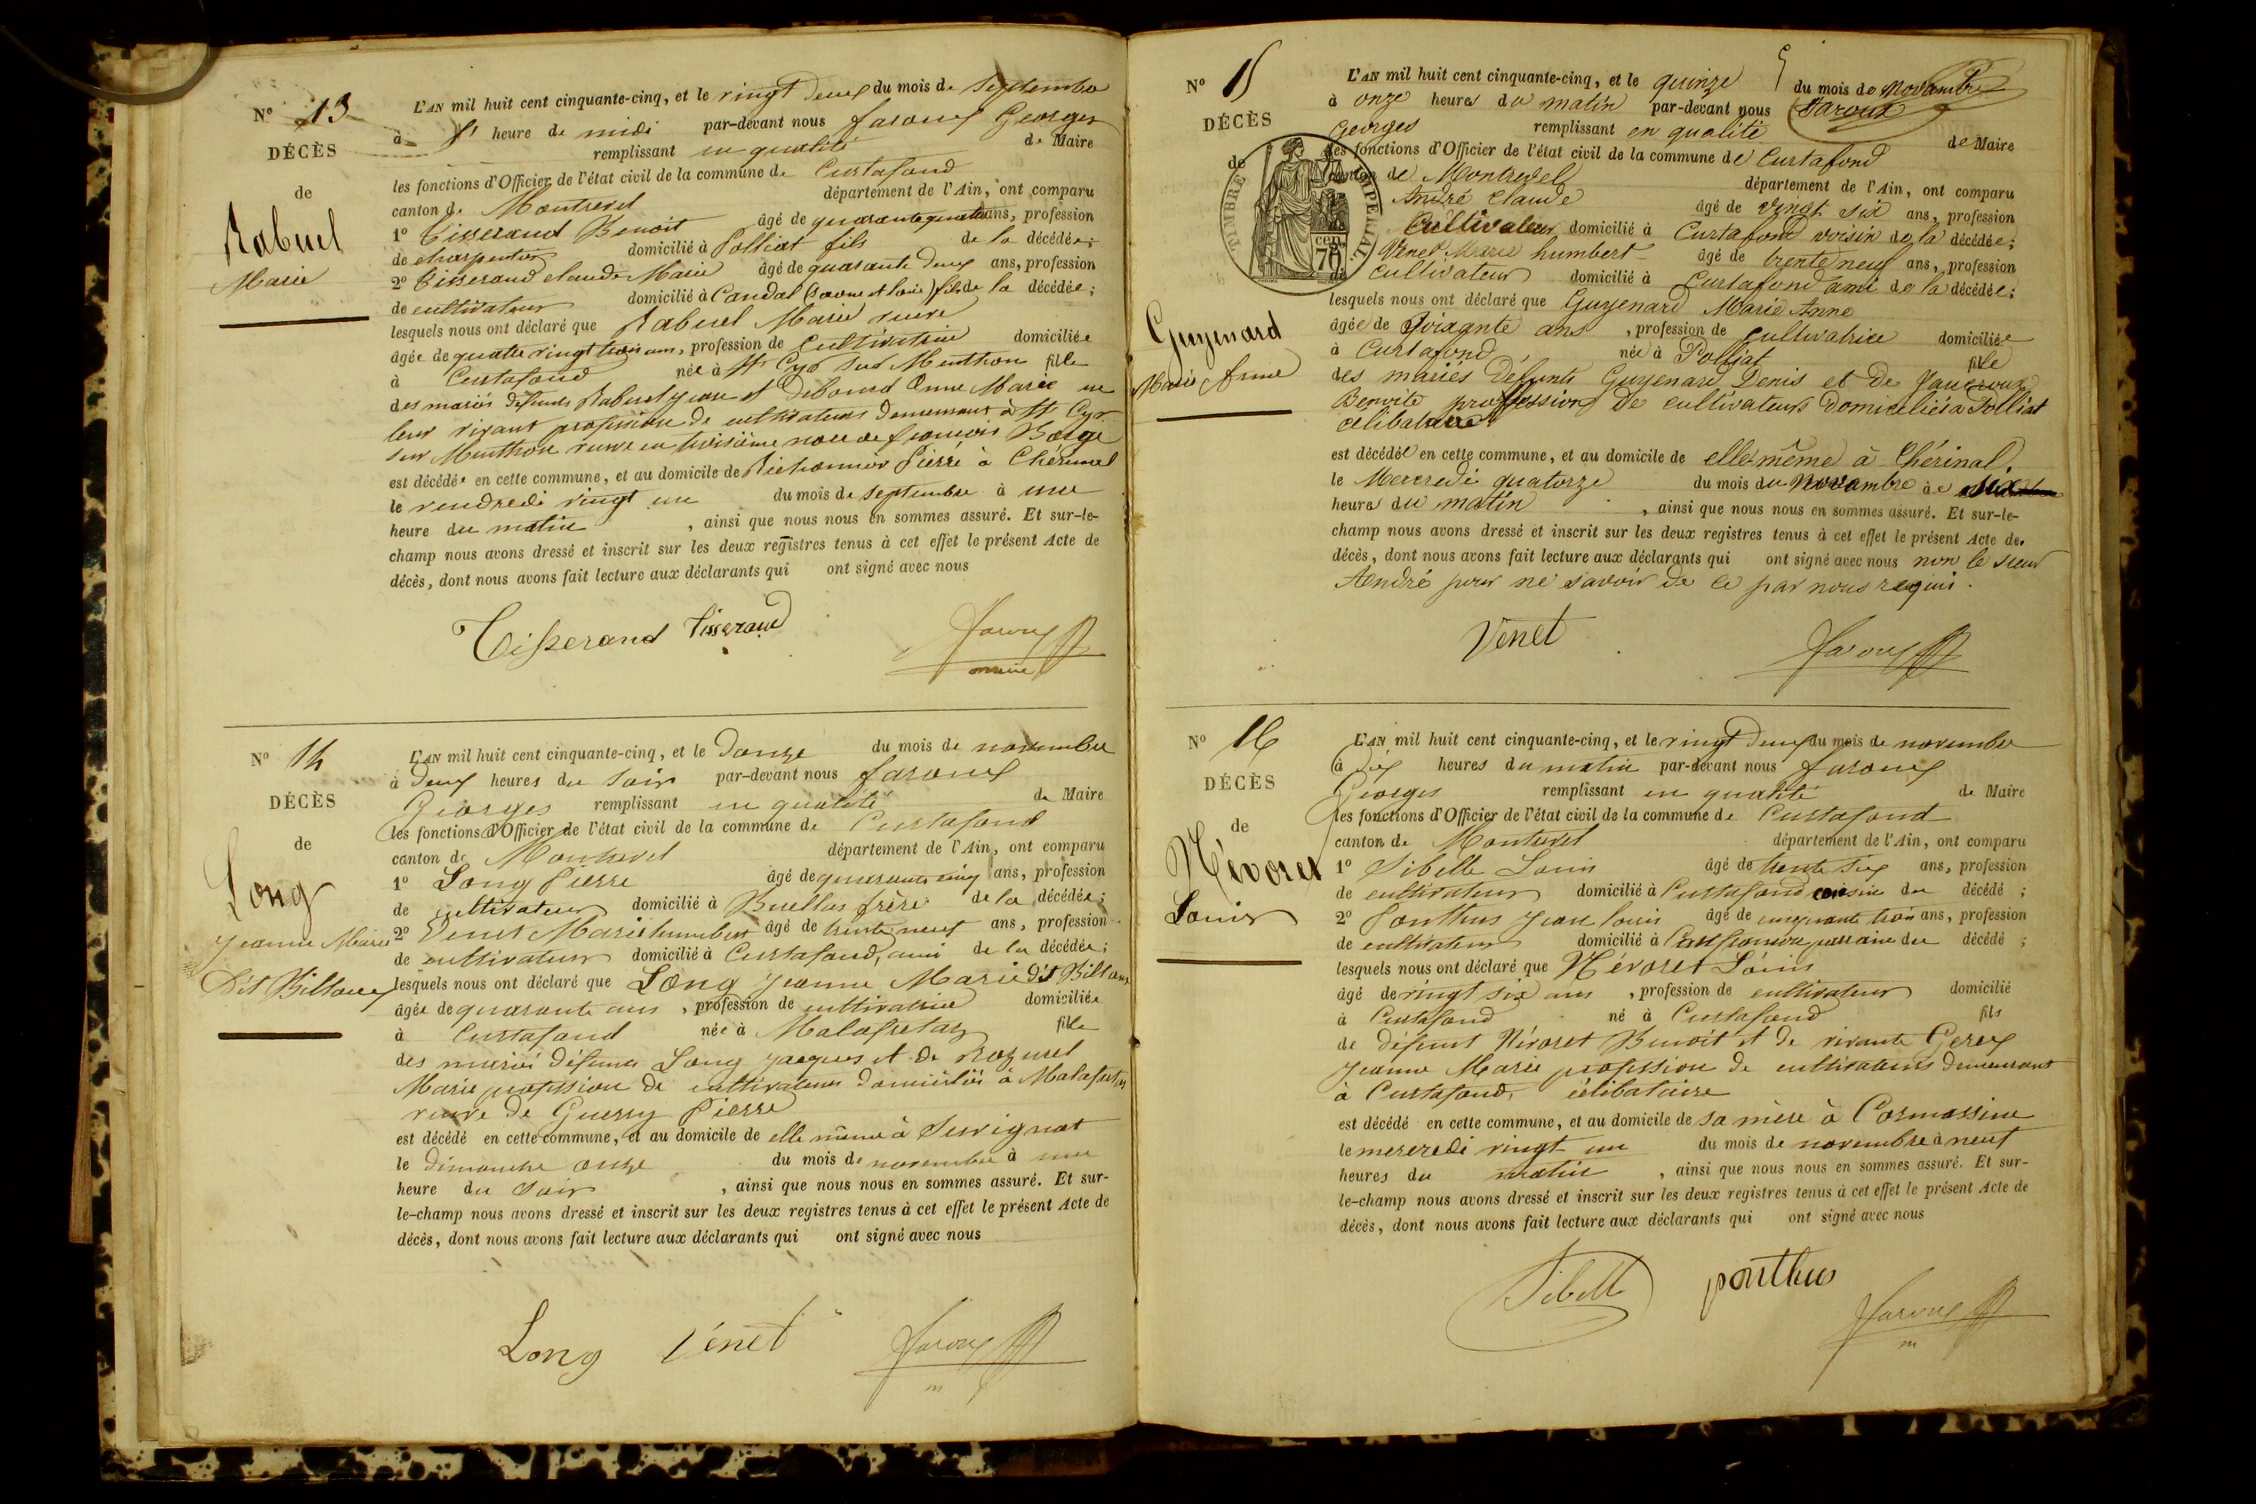 N° 13
DÉCÈS
de
Rabuel
Marie
L'AN mil huit cent cinquante-cinq, et le vingt deux du mois de septembre
à heure de midi par-devant nous faroux Georges
remplissant en qualité de Maire
les fonctions d'Officier de l'état civil de la commune de Curtafond
canton de Montrevel département de l'Ain, ont comparu
1° Tisserand Benoit âgé de quarante quatre ans, profession
de charpentier domicilié à Polliat fils de la décédée;
2° Tisserand claude Marie âgé de quarante deux ans, profession
de cultivateur domicilié à Condal (saone et loire) fils de la décédée;
lesquels nous ont déclaré que Rabuel Marie veuve
âgée de quatre vingt trois ans, profession de cultivatrice domiciliée
à Curtafond née à St Cyr sur Menthon fille
des mariés défunts Rabuel et Debourd Anne Marie
leur vivant profession de cultivateurs demeurant à St Cyr
sur Menthon veuve en troisième noce de françois Borge
est décédée en cette commune, et au domicile de Pierre à Chérinal
le vendredi vingt un du mois de septembre à une
heure du matin, ainsi que nous nous en sommes assuré. Et sur-le-
champ nous avons dressé et inscrit sur les deux registres tenus à cet effet le présent Acte de
décès, dont nous avons fait lecture aux déclarants qui ont signé avec nous
Tisserand Tisserand faroux
maire
N° 14
DÉCÈS
de
Long
Jeanne Marie
Dit Billoux
L'AN mil huit cent cinquante-cinq, et le Douze du mois de novembre
à deux heures du soir par-devant nous faroux
Georges remplissant en qualité de Maire
les fonctions d'Officier de l'état civil de la commune de Curtafond
canton de Montrevel département de l'Ain, ont comparu
1° Long Pierre âgé de quarante cinq ans, profession
de cultivateur domicilié à Buellas frère de la décédée;
2° Venet Marie humbert âgé de trente neuf ans, profession
de cultivateur domicilié à Curtafond, ami de la décédée;
lesquels nous ont déclaré que Long Jeanne Marie dit Billoux
âgée de quarante ans, profession de cultivatrice domiciliée
à Curtafond née à Malafretaz fille
des mariés défunts Long Jacques et de
Marie profession de cultivateurs domiciliés à Malafretaz
veuve de Guerry Pierre
est décédé en cette commune, et au domicile de elle même à Suvignat
le dimanche onze du mois de novembre à une
heure du soir, ainsi que nous nous en sommes assuré. Et sur-
le-champ nous avons dressé et inscrit sur les deux registres tenus à cet effet le présent Acte de
décès, dont nous avons fait lecture aux déclarants qui ont signé avec nous
Long Vénet faroux
m
N° 15
DÉCÈS
de
TIMBRE IMPERIAL
70 cen.
Guyenard
Marie Anne
L'AN mil huit cent cinquante-cinq, et le quinze du mois de Novembre
à onze heures du matin par-devant nous Faroux
Georges remplissant en qualité de Maire
les fonctions d'Officier de l'état civil de la commune de Curtafond
canton de Montrevel département de l'Ain, ont comparu
André Claude âgé de vingt six ans, profession
Cultivateur domicilié à Curtafond voisin de la décédée;
Venet Marie humbert âgé de trente neuf ans, profession
de cultivateur domicilié à Curtafond ami de la décédée;
lesquels nous ont déclaré que Guyenard Marie Anne
âgée de soixante ans, profession de cultivatrice domiciliée
à Curtafond née à Polliat fille
des mariés défunts Guyenard Denis et de
Benoite profession de cultivateurs domiciliés à Polliat
célibataire
est décédée en cette commune, et au domicile de elle-même à Chérinal.
le Mercredi quatorze du mois de novembre à six
heures du matin, ainsi que nous nous en sommes assuré. Et sur-le-
champ nous avons dressé et inscrit sur les deux registres tenus à cet effet le présent Acte de
décès, dont nous avons fait lecture aux déclarants qui ont signé avec nous non le sieur
André pour ne savoir de ce par nous requis.
Venet faroux
N° 16
DÉCÈS
de
Névoret
Louis
L'AN mil huit cent cinquante-cinq, et le vingt deux du mois de novembre
à dix heures du matin par-devant nous faroux
Georges remplissant en qualité de Maire
les fonctions d'Officier de l'état civil de la commune de Curtafond
canton de Montrevel département de l'Ain, ont comparu
1° Sibelle Louis âgé de trente six ans, profession
de cultivateur domicilié à Curtafond cousin du décédé;
2° Ponthus Jean louis âgé de cinquante trois ans, profession
de cultivateur domicilié à Confrançon parrain du décédé;
lesquels nous ont déclaré que Névoret Louis
âgé de vingt six ans, profession de cultivateur domicilié
à Curtafond né à Curtafond fils
de défunt Névoret Benoit et de vivante Gerex
Jeanne Marie profession de cultivateurs demeurant
à Curtafond, célibataire
est décédé en cette commune, et au domicile de sa mère à Cormassine
le mercredi vingt un du mois de novembre à neuf
heures du matin, ainsi que nous nous en sommes assuré. Et sur-
le-champ nous avons dressé et inscrit sur les deux registres tenus à cet effet le présent Acte de
décès, dont nous avons fait lecture aux déclarants qui ont signé avec nous
Sibelle ponthus faroux
m